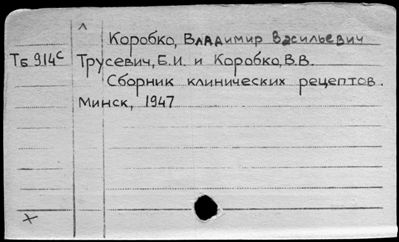 Коробко, Владимир Васильевич
Тб 9.14с Трусевич, Б.И. и Коробко, В.В.
Сборник клинических рецептов.
Минск, 1947